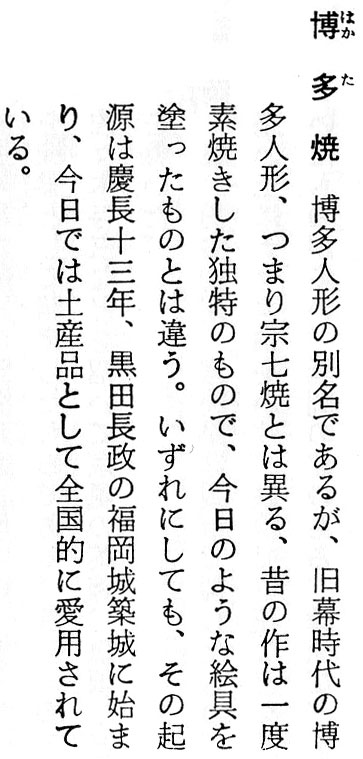 博多焼 博多人形の別名であるが、旧幕時代の博
多人形、つまり宗七焼とは異る、昔の作は一度
素焼きした独特のもので、今日のような絵具を
塗ったものとは違う。いずれにしても、その起
源は慶長十三年、黒田長政の福岡城築城に始ま
り、今日では土産品として全国的に愛用されて
いる。
はか
た